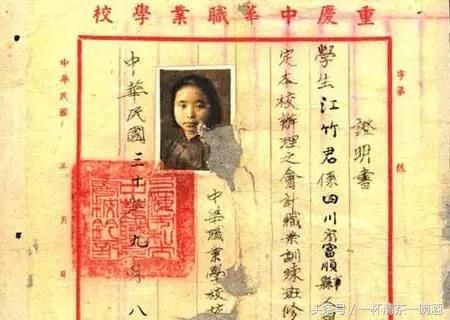 重慶中華職業學校
字第 號
證明書
學生江竹君係四川省富順縣人
定本校辦理之會計職業訓練班修
中華職業學校校
中華民國三十 九月八
中華民國 年 月 日
头条号 / 一杯 茶一碗酒